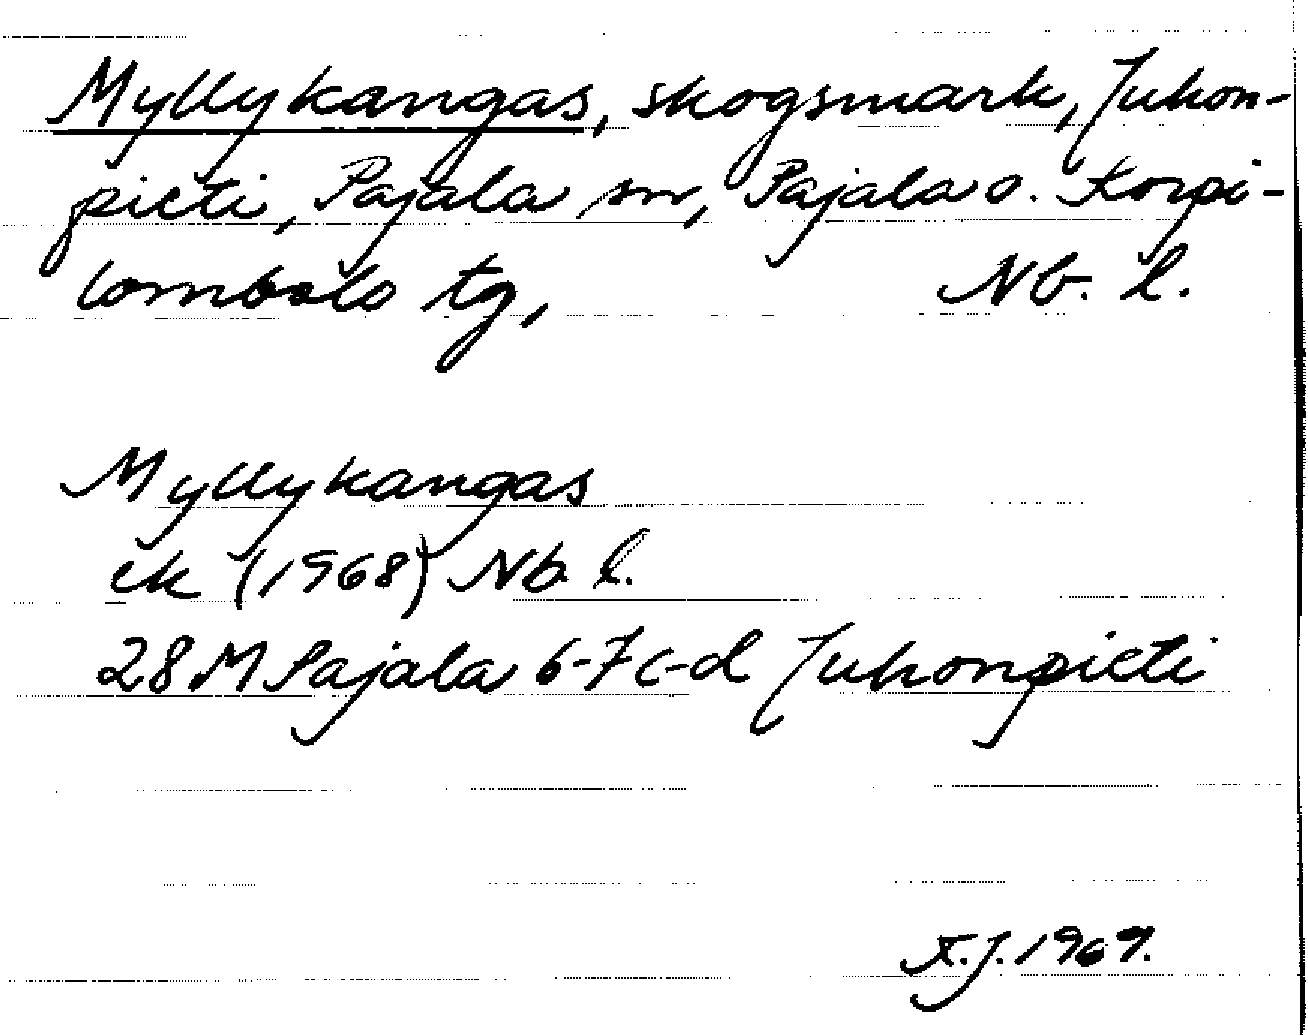 Myllykangas, skogsmark, Juhon-
pieti, Pajala sn, Pajala o. Korpi-
lombolo tg, Nb. l.
Myllykangas
ek (1968) Nb. l.
28 M Pajala 6-7 c-d Juhonpieti
K.J. 1969.